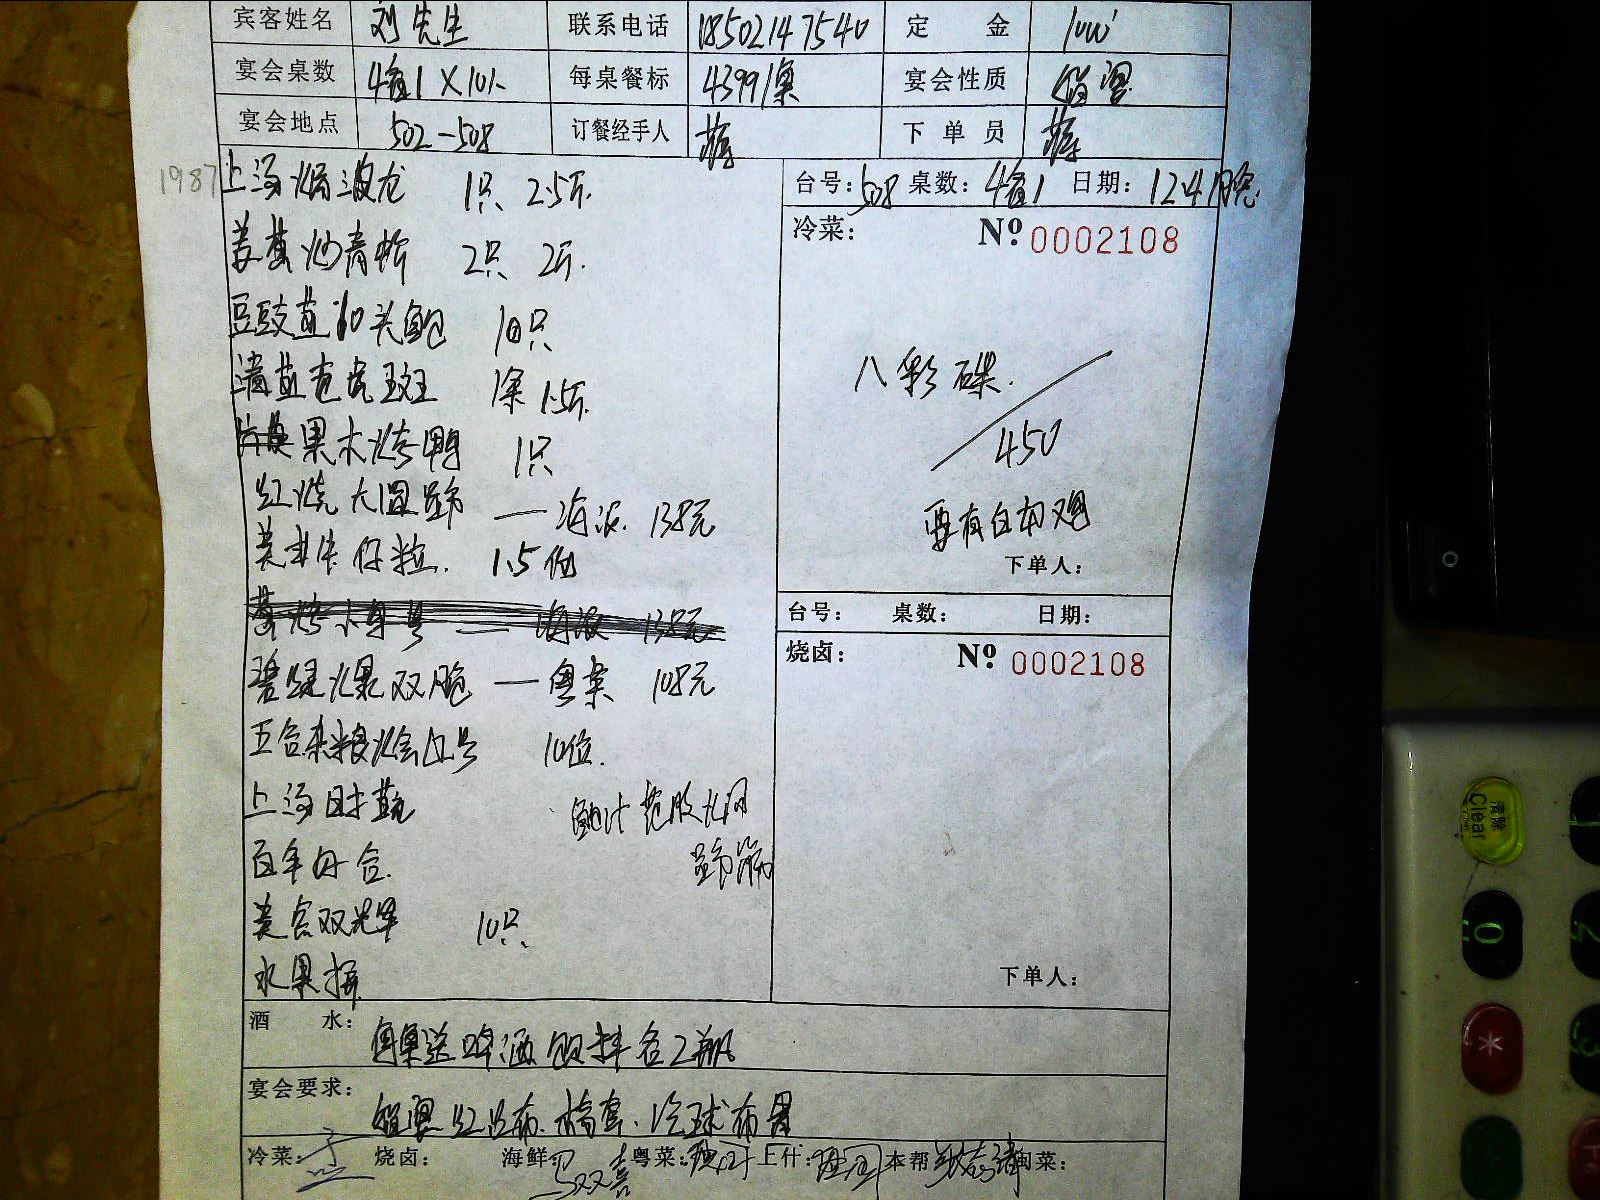 宾客姓名 刘先生 联系电话 18502147540 定 金 1000
宴会桌数 4备1 X10人 每桌餐标 4399/桌 宴会性质 婚宴
宴会地点 502-508 订餐经手人 下 单 员
1987 上汤焗波龙 1只 2.5斤
台号: 508 桌数: 4备1 日期: 12.4晚
冷菜: Nº 0002108
姜葱炒青蟹 2只 2斤.
豆豉蒸10头鲍 10只
清蒸老虎斑 1条 1.5斤
果木烤鸭 1只
八彩碟.
450
红烧大圆蹄 — 海派 138元
要有白切鸡
美式牛仔粒. 1.5份
下单人:
台号: 桌数: 日期:
烧卤: Nº 0002108
碧绿爆双脆 — 粤菜 108元
五谷杂粮烩 10位.
上汤时蔬
百年好合.
美点双辉 10只
水果拼
下单人:
酒 水: 每桌送啤酒饮料各2瓶
宴会要求: 婚宴红台布.椅套.汽球布置
冷菜: 烧卤: 海鲜 粤菜: 上什: 本帮 闽菜:
清除
Clear
0
2
3
*